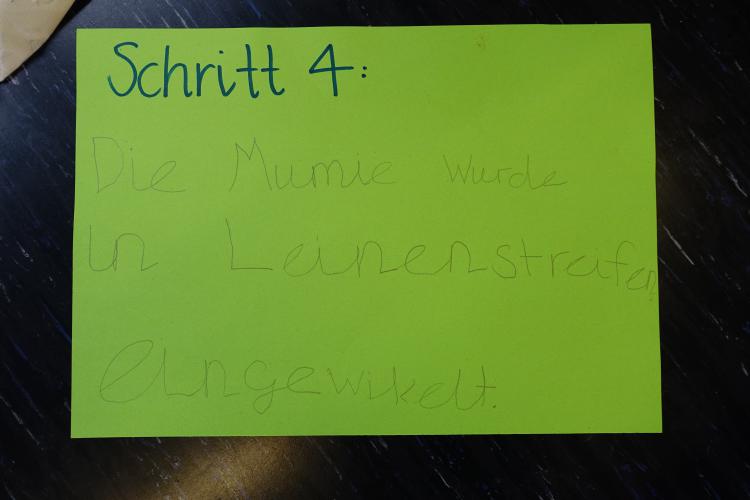 Schritt 4:
Die Mumie wurde
in Leinenstreifen
eingewikelt.